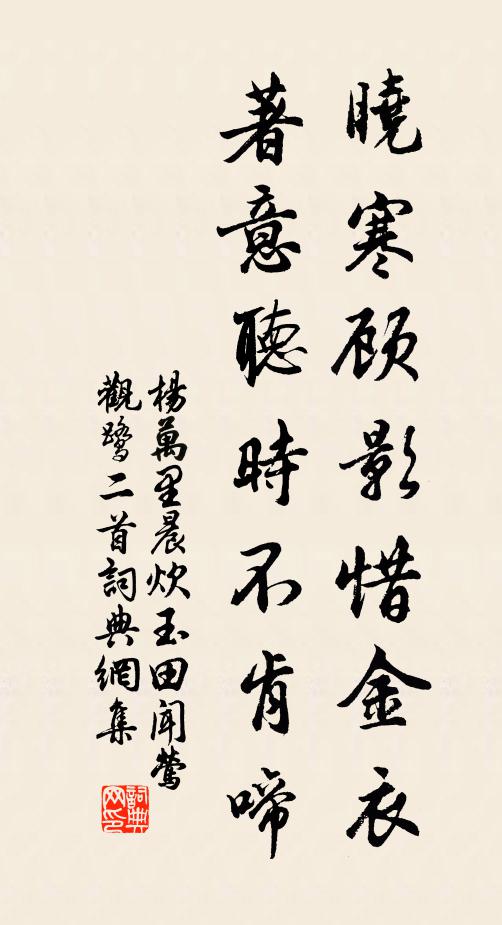 曉寒顧影惜金衣
著意聽時不肯啼
楊萬里晨炊玉田聞鶯
觀鷺二首詞典網集
詞典
网印